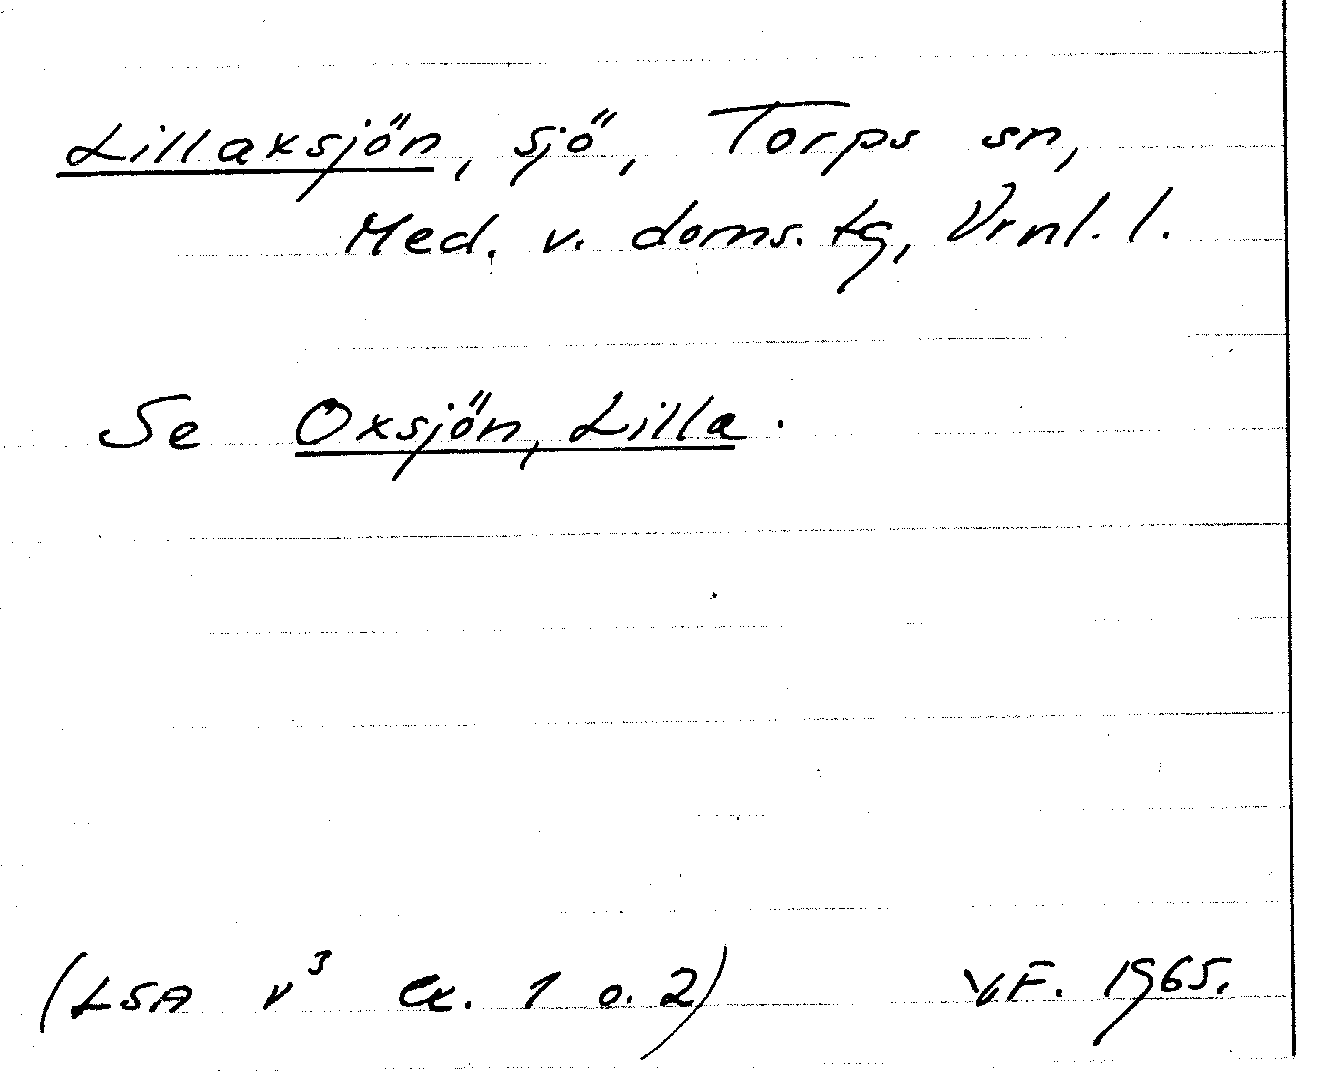 Lillaxsjön, sjö, Torps sn,
Med. v. doms. tg, Vrnl. l.
Se Oxsjön, Lilla.
(LSA v³ ex. 1 o. 2) V.F. 1965.